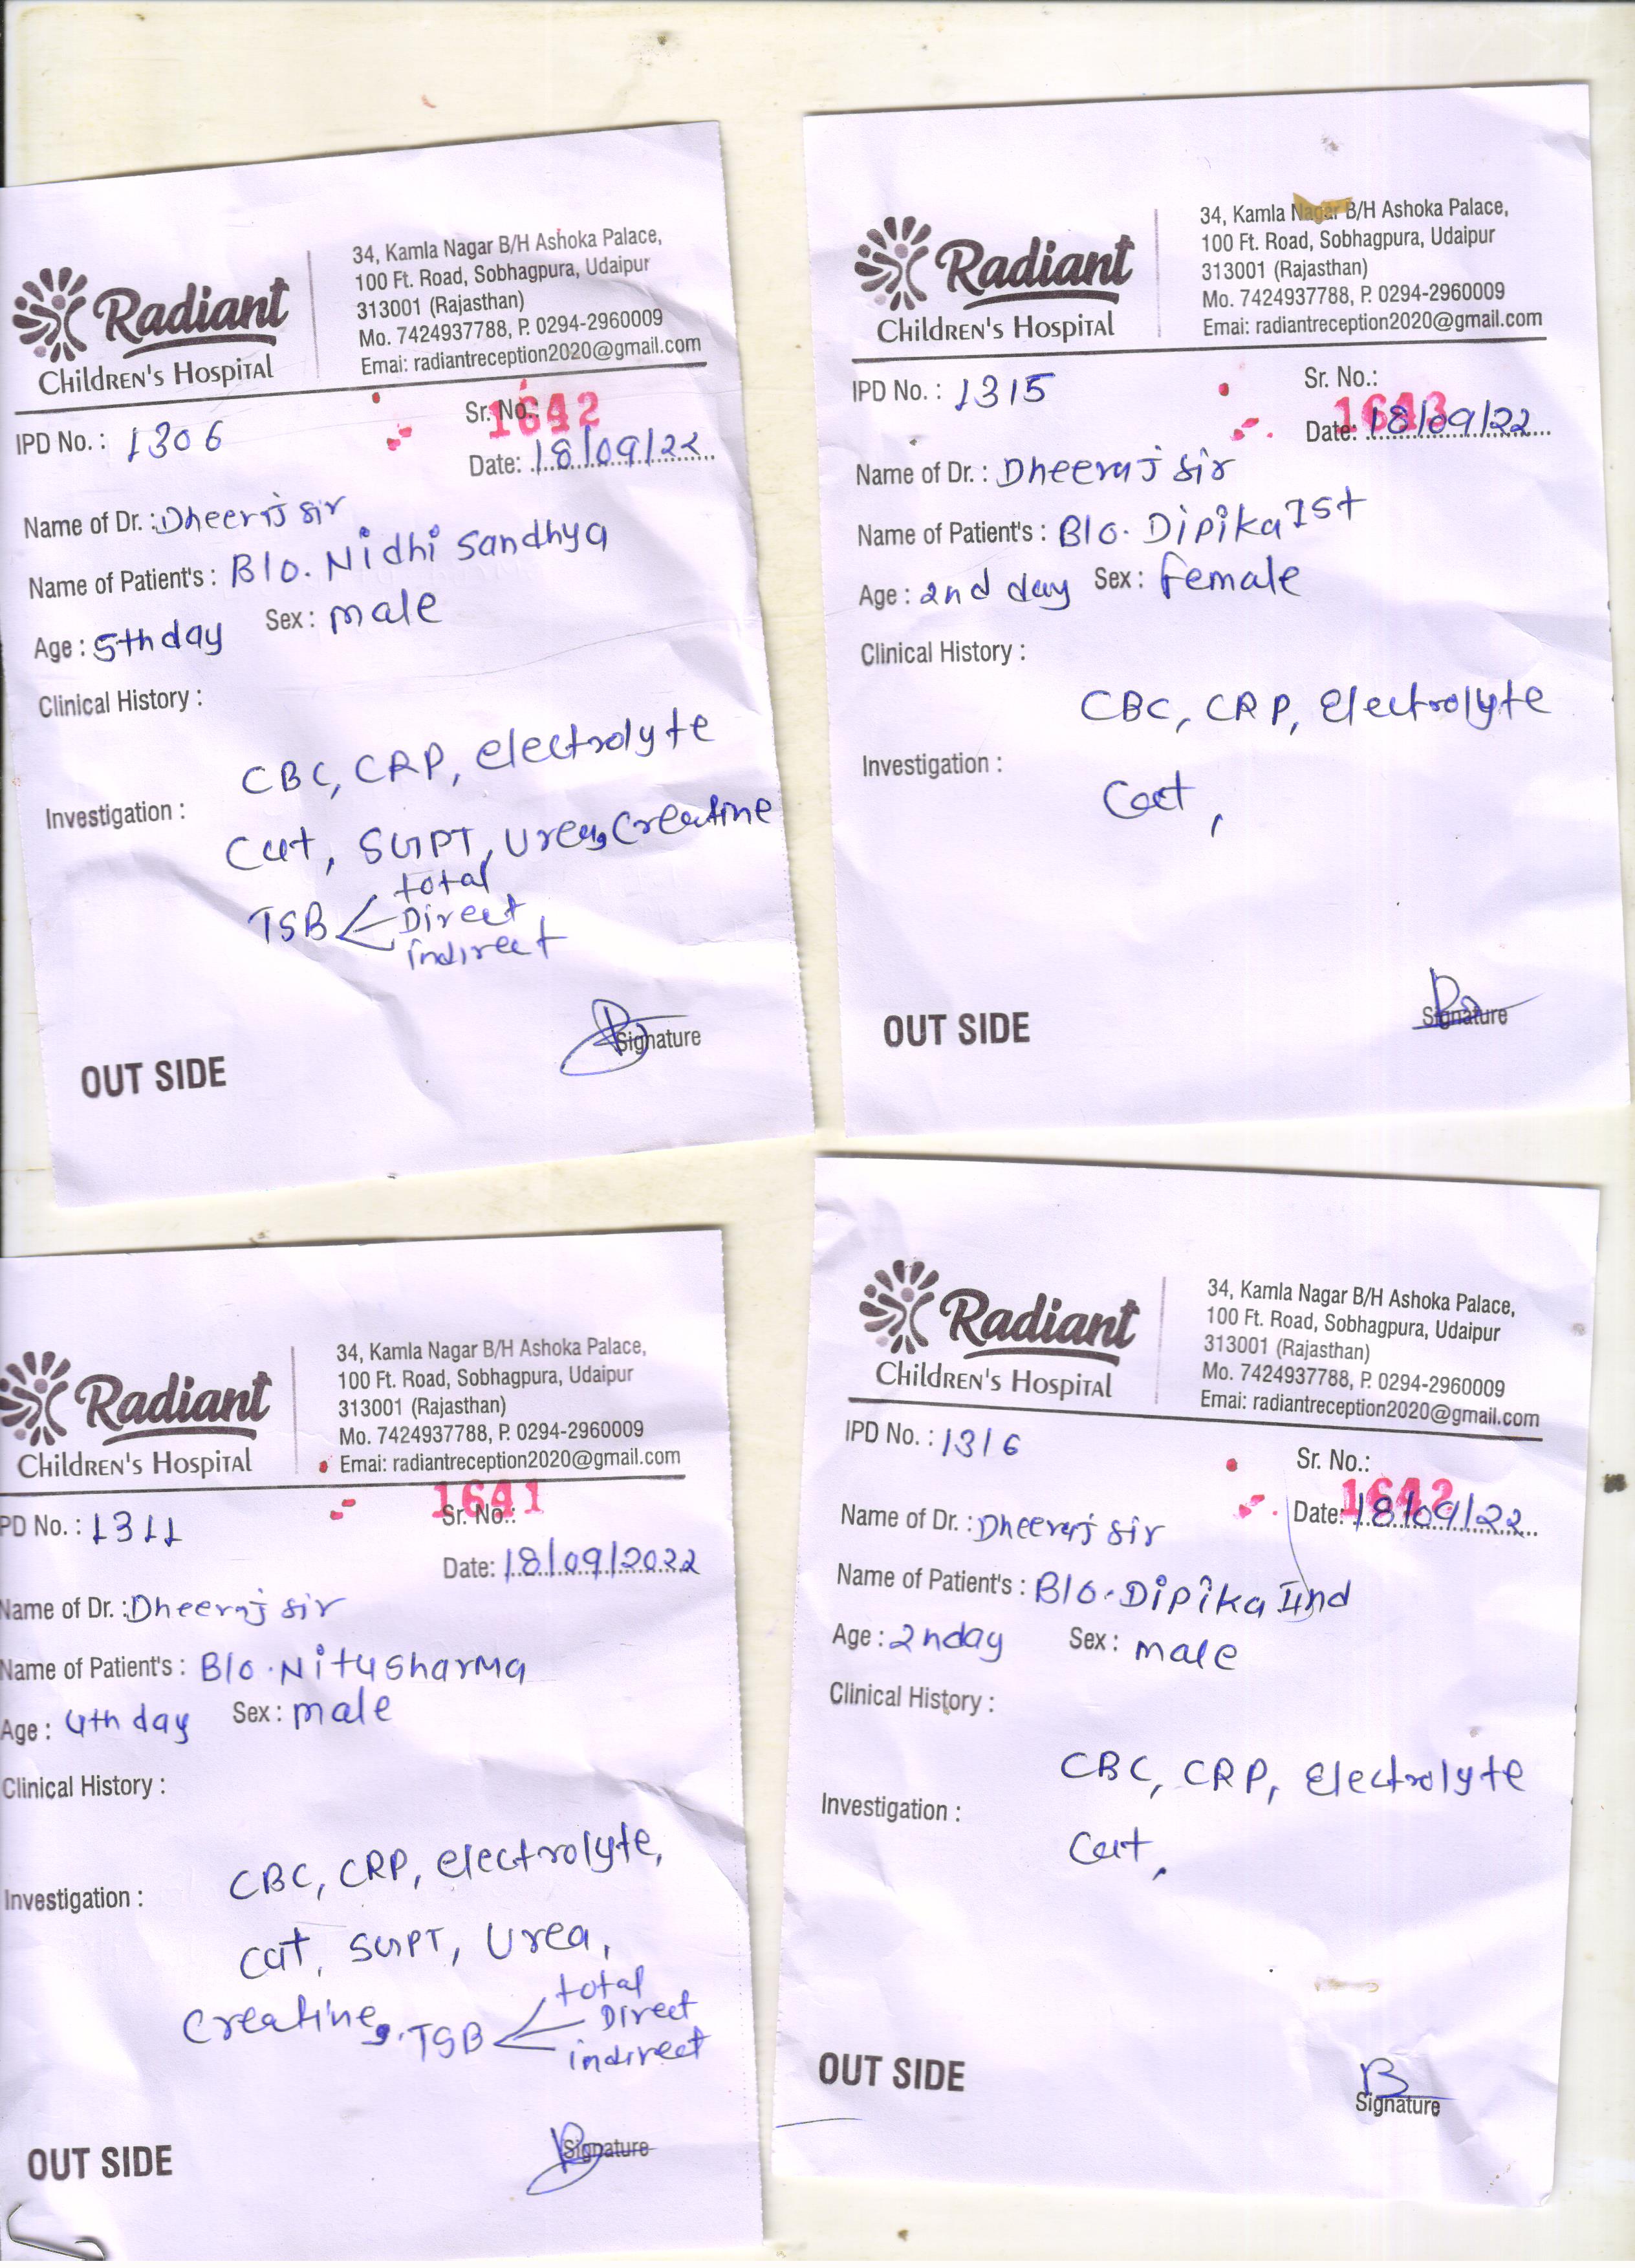 Radiant
Children's Hospital
34, Kamla Nagar B/H Ashoka Palace,
100 Ft. Road, Sobhagpura, Udaipur
313001 (Rajasthan)
Mo. 7424937788, P. 0294-2960009
Emai: radiantreception2020@gmail.com
IPD No. : 1306
Sr. No.: 1642
Date: 18/09/22
Name of Dr. : Dheerj sir
Name of Patient's : B/o. Nidhi Sandhya
Age : 5th day Sex : male
Clinical History :
CBC, CRP, electrolyte
Investigation :
Cat, SGPT, Urea, Creatine
TSB total
Direct
indirect
Signature
OUT SIDE
Radiant
Children's Hospital
34, Kamla Nagar B/H Ashoka Palace,
100 Ft. Road, Sobhagpura, Udaipur
313001 (Rajasthan)
Mo. 7424937788, P. 0294-2960009
Emai: radiantreception2020@gmail.com
IPD No. : 1315
Sr. No.: 1643
Date: 18/09/22
Name of Dr. : Dheeraj sir
Name of Patient's : B/o. Dipika Ist
Age : 2nd day Sex : female
Clinical History :
CBC, CRP, Electrolyte
Investigation :
Cat,
Signature
OUT SIDE
Radiant
Children's Hospital
34, Kamla Nagar B/H Ashoka Palace,
100 Ft. Road, Sobhagpura, Udaipur
313001 (Rajasthan)
Mo. 7424937788, P. 0294-2960009
Emai: radiantreception2020@gmail.com
PD No. : 1311
Sr. No.: 1641
Date: 18/09/2022
Name of Dr. : Dheeraj sir
Name of Patient's : B/o. Nitu Sharma
Age : 4th day Sex : male
Clinical History :
CBC, CRP, electrolyte,
Investigation :
Cat, SGPT, Urea,
Creatine, TSB total
Direct
indirect
Signature
OUT SIDE
Radiant
Children's Hospital
34, Kamla Nagar B/H Ashoka Palace,
100 Ft. Road, Sobhagpura, Udaipur
313001 (Rajasthan)
Mo. 7424937788, P. 0294-2960009
Emai: radiantreception2020@gmail.com
IPD No. : 1316
Sr. No.: 1642
Date: 18/09/22
Name of Dr. : Dheeraj sir
Name of Patient's : B/o. Dipika IInd
Age : 2nday Sex : male
Clinical History :
CBC, CRP, Electrolyte
Investigation :
Cat,
Signature
OUT SIDE